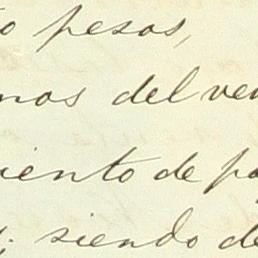 o pesos,
nos del ven
iento de pa
s; siendo de